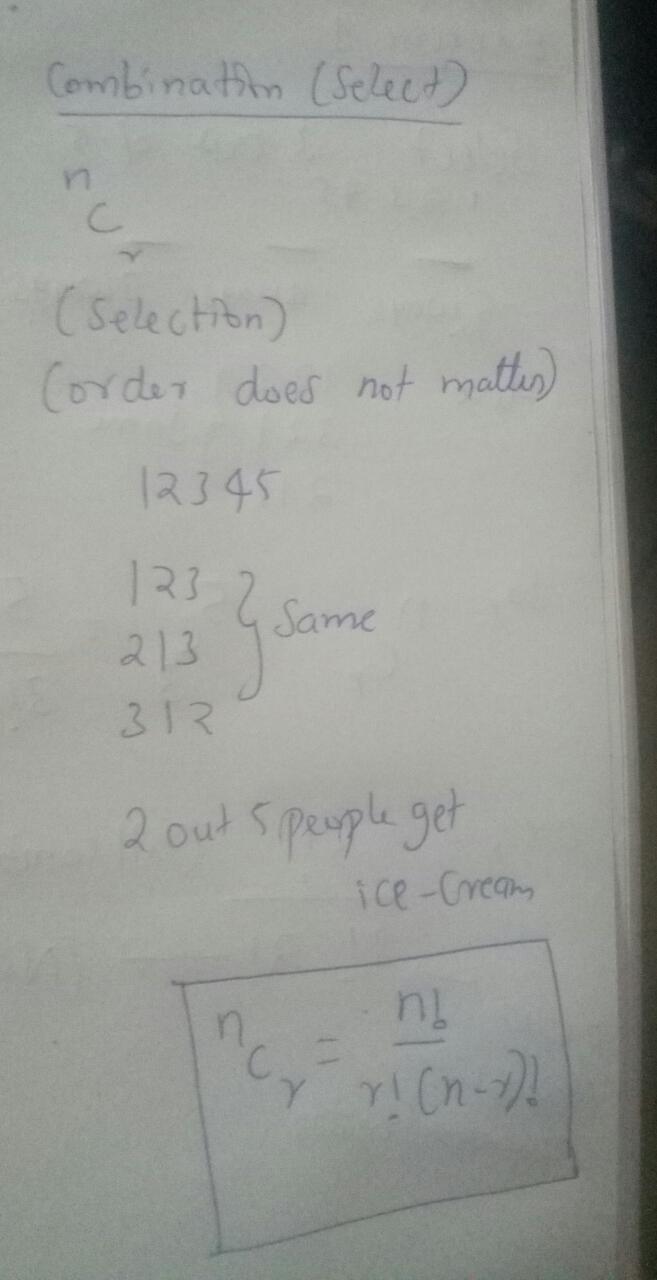 Combination (Select)
n
C
r
(Selection)
(order does not matter)
12345
123
213
312
} Same
2 out 5 people get
ice-Cream
nCr = n!
r!(n-r)!